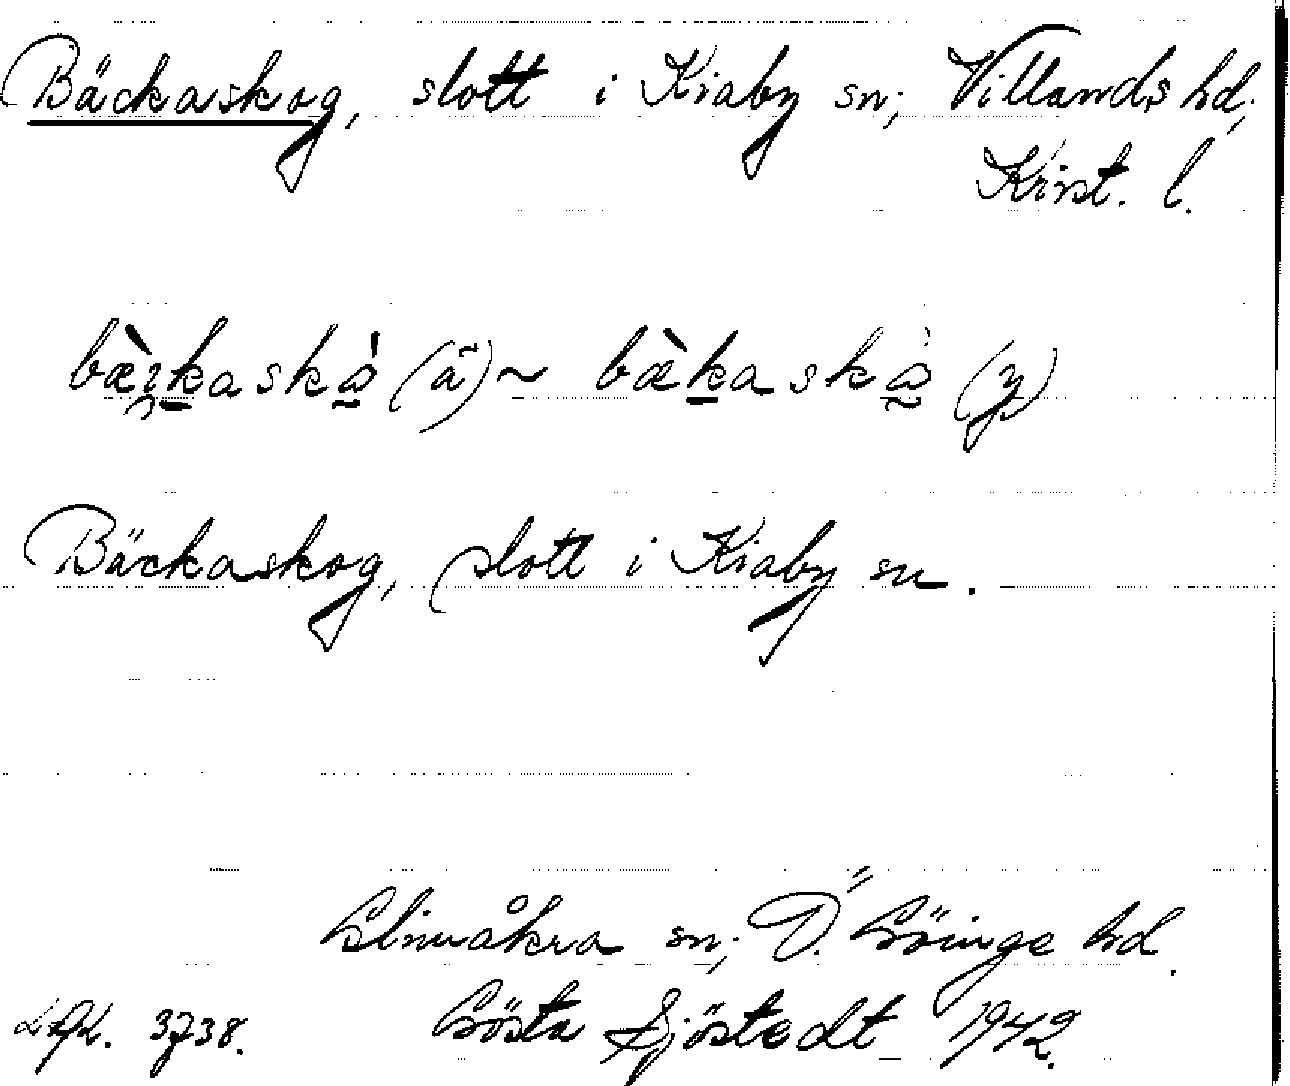 Bäckaskog, slott i Kiaby sn; Villands hd;
Krist. l.
(ä) ~ (y)
Bäckaskog, slott i Kiaby sn.
Glimåkra sn; Ö. Göinge hd.
3738. Gösta Sjöstedt 1942.